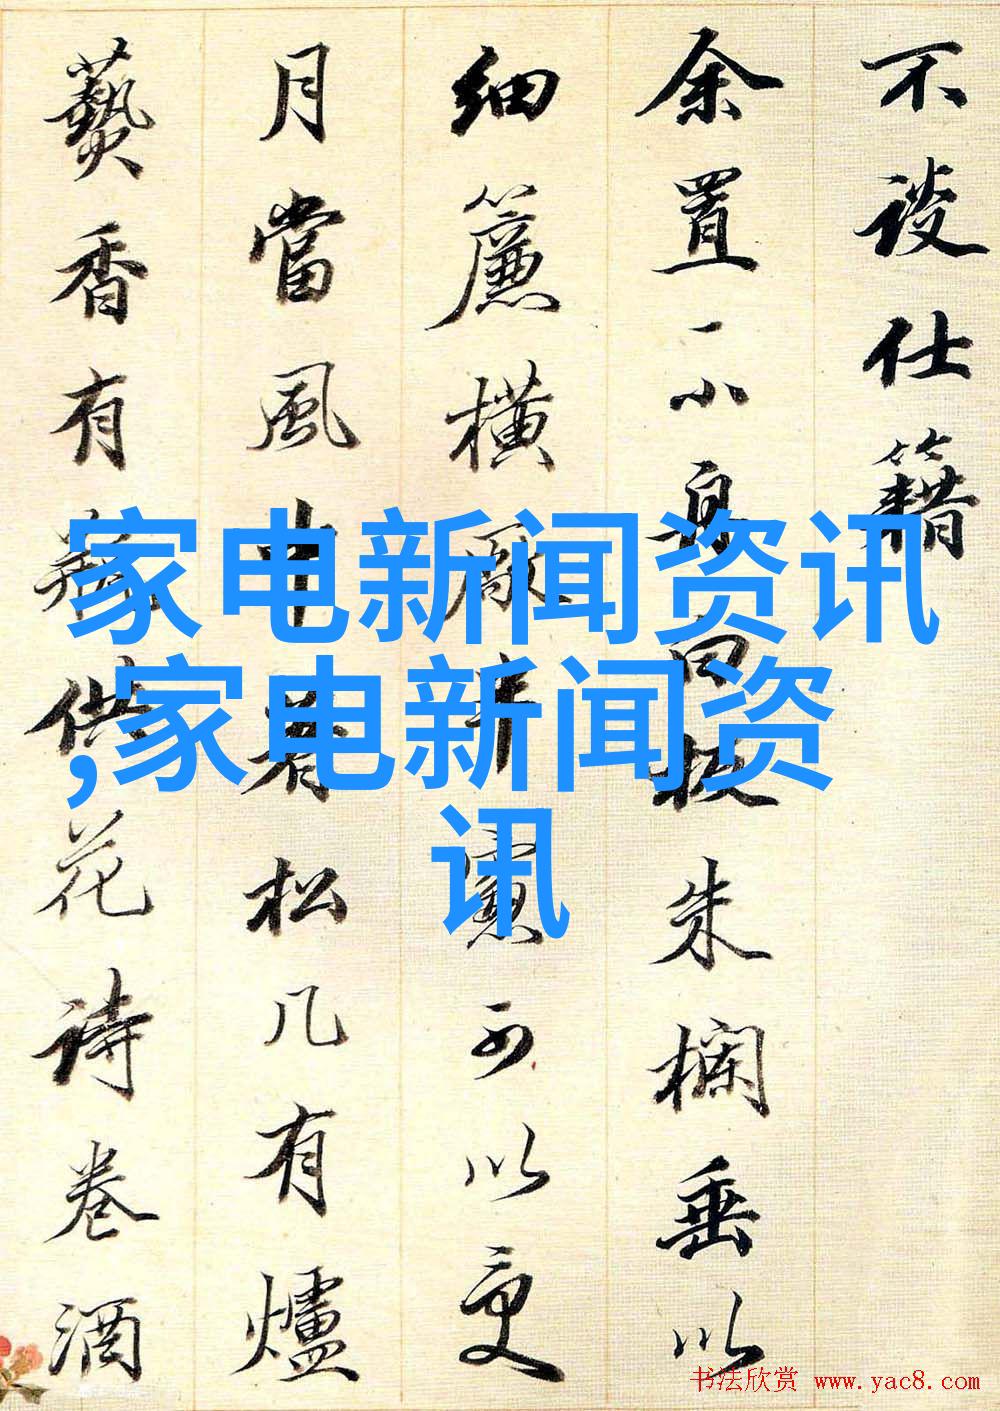 不談仕籍
余置一小舟板朱欄垂以
細簾橫可以受
月當風中着松几有爐
爇香有瓶供花詩卷酒
家电新闻资讯
,家电新闻资
讯
书法欣赏 www.yac8.com